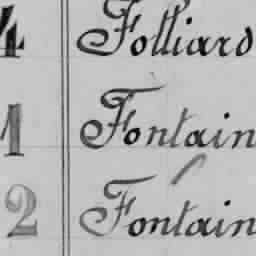 4 Folliard
1 Fontain
2 Fontain